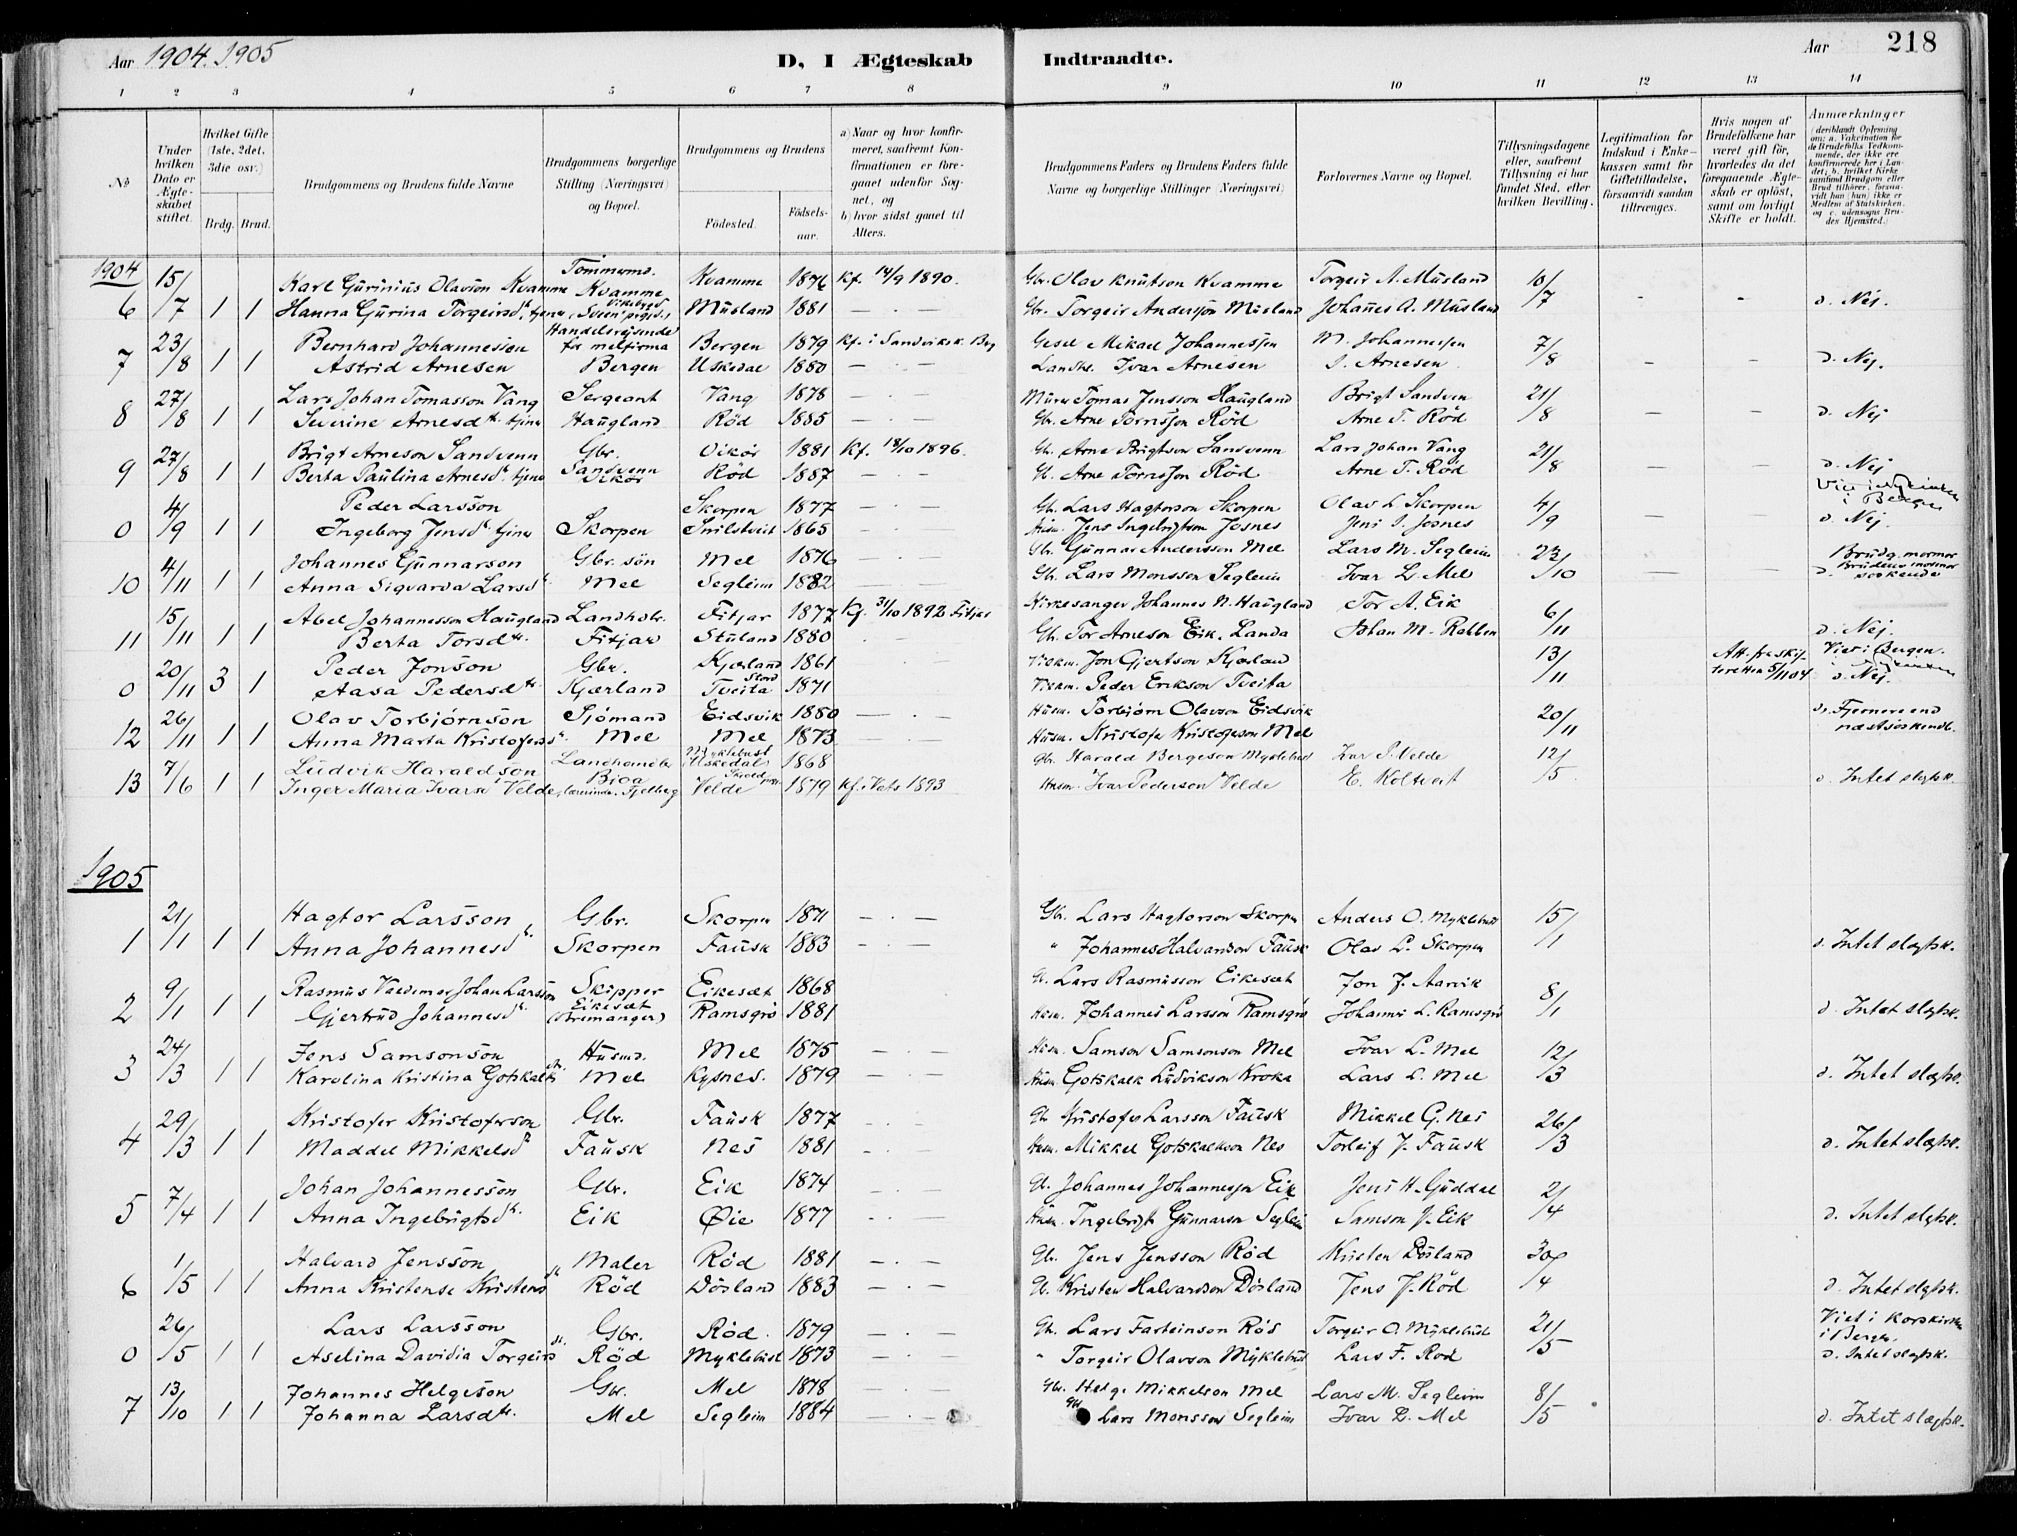 Aar 1904. 1905
D, I Ægteskab Indtraadte.
Aar 218
1 2 3 4 5 6 7 8 9 10 11 12 13 14
№
Under hvilken Dato er Ægteskabet stiftet.
Hvilket Gifte (1ste, 2det, 3die osv.)
Brdg. Brud.
Brudgommens og Brudens fulde Navne
Brudgommens borgerlige Stilling (Næringsvei) og Bopæl.
Brudgommens og Brudens
Fødested. Fødselsaar.
a) Naar og hvor konfirmeret, saafremt Konfirmationen er foregaaet udenfor Sognet, og
b) hvor sidst gaaet til Alters.
Brudgommens Faders og Brudens Faders fulde Navne og borgerlige Stillinger (Næringsvei)
Forlovernes Navne og Bopæl.
Tillysningsdagene eller, saafremt Tillysning ei har fundet Sted, efter hvilken Bevilling.
Legitimation for Indskud i Enkekassen samt for Giftetilladelse, forsaavidt saadan tiltrænges.
Hvis nogen af Brudefolkene har været gift før, hvorledes da det foregaaende Ægteskab er opløst, samt om lovligt Skifte er holdt.
Anmærkninger
1904
15/ Karl Gurinius Olavson Kvamme Tømmermd. Kvamme Kvamme 1876 Kf. 14/9 1890. Gbr. Olav Knutson Kvamme Torgeir A. Musland 10/
6 /7 1 1 Hanna Gurina Torgeirsdtr. tjener Musland 1881 — . — Gbr. Torgeir Andersson Musland Johannes A. Musland /7 - - d. Nej.
23/ Bernhard Johannesson Handelsrejsende for melfirma Bergen 1879 Kf. i Sandviksk. Brg Gesel Mikael Johannessen M. Johannessen 7/
7 /8 1 1 Astrid Arnesen Bergen Uskedal 1880 — . — Landhl. Ivar Arnesen I. Arnesen /8 — — d. Nej.
27/ Lars Johan Tomasson Vang Sergeant Vang 1878 — . — Murer Tomas Jensson Haugland Brigt Sandven 21/
8 /8 1 1 Severine Arnesdtr. tjener Haugland Rød 1885 — . — Gbr. Arne Tormsson Rød Arne T. Rød /8 — — d. Nej
27/ Brigt Arneson Sandvenn Gbr. Vikør 1881 Kf. 18/10 1896. Gb. Arne Brigtson Sandvenn Lars Johan Vang 21/
9 /8 1 1 Berta Paulina Arnesdtr. tjener Sandvenn Vikør Rød 1887 — . — Gb. Arne Tormsson Rød Arne T. Rød /8 — — d. Nej
4/ Peder Larsson Skorpen 1877 — . — Gb. Lars Hagtorson Skorpen Olav L. Skorpen 4/ i Bergen
0 /9 1 1 Ingeborg Jensdtr tjener Skorpen Snilstveit 1865 — . — Husm. Jens Ingebrigtson Josnes Jens I. Josnes /9 d. Nej.
4/ Johannes Gunnarson Gbr. søn Mel 1876 — . — Gbr. Gunnar Andersson Mel Lars M. Segleim 23/ Brudg. mormor
10 /11 1 1 Anna Sigvarda Larsdtr Mel Segleim 1882 — . — Gb. Lars Monsson Segleim Ivar L. Mel /10 — — d. Brudens mormor søskende
15/ Abel Johannesson Haugland Landhdlr. Fitjar 1877 Kf. 3/10 1892 Fitjar Kirkesanger Johannes N. Haugland Tor A. Eik 6/
11 /11 1 1 Berta Torsdtr. Fitjar Stuland 1880 Gb. Tor Arneson Eik. Landa Johan M. Robben /11 d. Nej.
20/ Peder Jonson Gbr. Kjærland 1861 — . — Jon Gjertson Kjærland 13/ Att. fra skif- Viet i Bergen.
0 /11 3 1 Aasa Pedersdtr. Kjærland Tveita Stord 1871 Peder Erikson Tveita /11 teretten 5/11 04 d. Nej.
26/ Olav Torbjørnson Sjómand Eidsvik 1880 — . — Husm. Torbjørn Olavson Eidsvik 20/ d. Fjernere end
12 /11 1 1 Anna Marta Kristofersdtr. Mel Mel 1873 Husm. Kristofer Kristoferson Mel /11 næstsøskendb.
7/ Ludvik Haraldson Landhandler Myklebust Uskedal 1868 Gbr. Harald Bergeson Myklebust Ivar P. Velde 12/
13 /6 1 1 Inger Maria Ivarsd Velde, Fjelberg Velde 1879 Kf. i Vats 1893 Husm. Ivar Pederson Velde E. Koltveit /5 d. Intet slægtsk.
1905
21/ Hagtor Larsson Gbr. Skorpen 1871 — . — Gb. Lars Hagtorson Skorpen Anders O. Myklebust 15/
1 /1 1 1 Anna Johannesdtr. Skorpen Fausk 1883 — . — " Johannes Halvardson Fausk Olav L. Skorpen /1 d. Intet slægtsk.
9/ Rasmus Valdemar Johan Larsson Skipper Eikesæt 1868 Gb. Lars Rasmusson Eikesæt Jon J. Aarvik 8/
2 /1 1 1 Gjertrud Johannesdtr. Eikesæt (Bremanger) Ramsgrø 1881 Husm. Johannes Larsson Ramsgrø Johannes L. Ramsgrø /1 d. Intet slægtsk.
24/ Jens Samsonson Husmd. Mel 1875 — . — Husm. Samson Samsonson Mel Ivar L. Mel 12/
3 /3 1 1 Karolina Kristina Gotskalksdtr. Mel Kysnes. 1879 — . — Husm. Gotskalk Ludvikson Kroka Lars L. Mel /3 d. Intet slægtsk.
29/ Kristofer Kristoferson Gbr. Fausk 1877 — . — Gb. Kristofer Larsson Fausk Mikkel G. Nes 26/
4 /3 1 1 Maddel Mikkelsdtr Fausk Nes 1881 — . — Husm. Mikkel Gotskalkson Nes Torleif J. Fausk /3 d. Intet slægtsk.
7/ Johan Johannesson Gbr. Eik 1874 — . — Gb. Johannes Johannesson Eik Jens H. Guddal 2/
5 /4 1 1 Anna Ingebrigtsdtr. Eik Øie 1877 — . — Husm. Ingebrigt Gunnarson Segleim Samson J. Eik /4 d. Intet slægtsk.
1/ Halvard Jensson Maler Rød 1881 — . — Gb. Jens Jensson Rød Kristen Døsland 30/
6 /5 1 1 Anna Kristense Kristensdtr Rød Døsland 1883 — . — Gb. Kristen Halvardson Døsland Jens J. Rød /4 d. Intet slægtsk.
26/ Lars Larsson Gbr. Rød. 1879 — . — Gb. Lars Farteinson Røs Torgeir O. Myklebust 21/ Viet i Korskirken i Bergen.
0 /5 1 1 Aselina Davidia Torgeirsdtr. Rød Myklebust 1873 — . — " Torgeir Olavson Myklebust Lars F. Rød /5 d. Intet slægtsk.
13/ Johannes Helgeson Gbr. Mel 1878 — . — Gbr. Helge Mikkelson Mel Lars M. Segleim 8/
7 /10 1 1 Johanna Larsdtr. Mel Segleim 1884 — . — Gbr Lars Monsson Segleim Ivar L. Mel /5 d. Intet slægtsk.